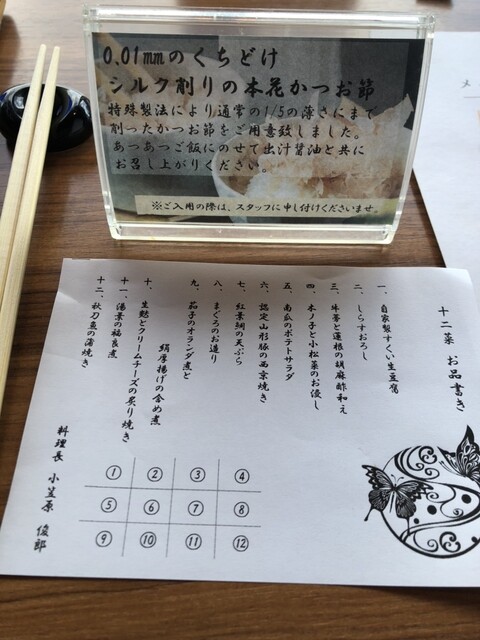 0.01mmのくちどけ
シルク削りの本花かつお節
特殊製法により通常の1/5の薄さにまで
削ったかつお節をご用意致しました。
あつあつご飯にのせて出汁醤油と共に
お召し上がりください。
※ご入用の際は、スタッフに申し付けくださいませ。
十二菜 お品書き
一、自家製すくい生豆腐
二、しらすおろし
三、牛蒡と蓮根の胡麻酢和え
四、木ノ子と小松菜のお浸し
五、南瓜のポテトサラダ
六、認定山形豚の西京焼き
七、紅葉鯛の天ぷら
八、まぐろのお造り
九、茄子のオランダ煮と
絹厚揚げの含め煮
十、生麩とクリームチーズの炙り焼き
十一、湯葉の福良煮
十二、秋刀魚の蒲焼き
① ② ③ ④
⑤ ⑥ ⑦ ⑧
⑨ ⑩ ⑪ ⑫
料理長 小笠原 俊郎